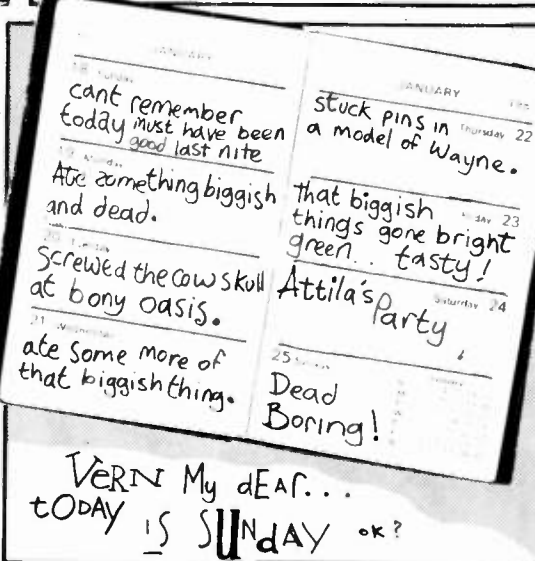 JANUARY
18 Sunday
cant remember
today must have been
good last nite
19 Monday
Ate something biggish
and dead.
20 Tuesday
Screwed the cow skull
at bony oasis.
21 Wednesday
ate some more of
that biggish thing.
JANUARY
Thursday 22
stuck pins in
a model of Wayne.
23
that biggish
things gone bright
green.. tasty!
Saturday 24
Attila's
Party
25
Dead
Boring!
VERN My dEAr...
tODAY IS SUNdAY OK?